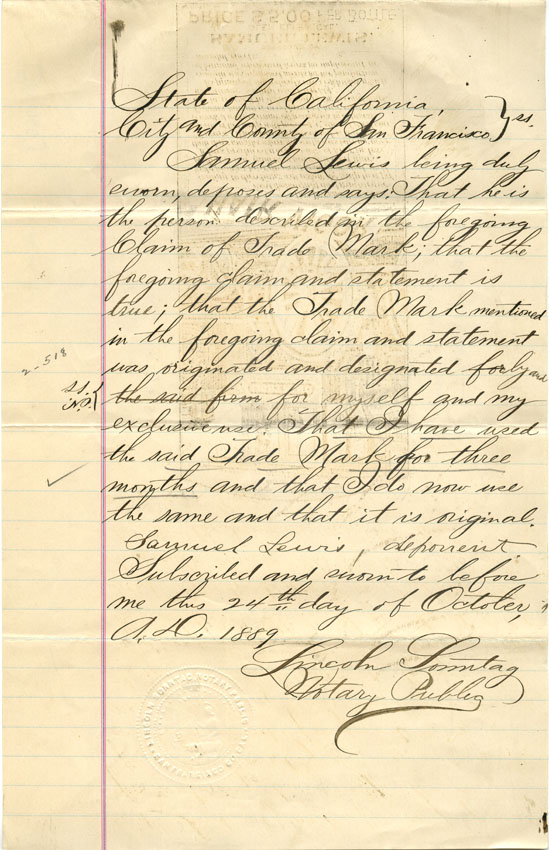 State of California,
City and County of San Francisco } ss.
Samuel Lewis being duly
sworn, deposes and says: That he is
the person described in the foregoing
Claim of Trade Mark; that the
foregoing claim and statement is
true; that the Trade Mark mentioned
in the foregoing claim and statement
was originated and designated for by and
2-518
S.S.
N.P.
the said firm for myself and my
exclusive use. That I have used
the said Trade Mark for three
months and that I do now use
the same and that it is original.
Samuel Lewis, deponent.
Subscribed and sworn to before
me this 24th day of October,
A.D. 1889
Lincoln Sonntag
Notary Public
SAMUEL LEWIS
PRICE $5.00 PER BOTTLE